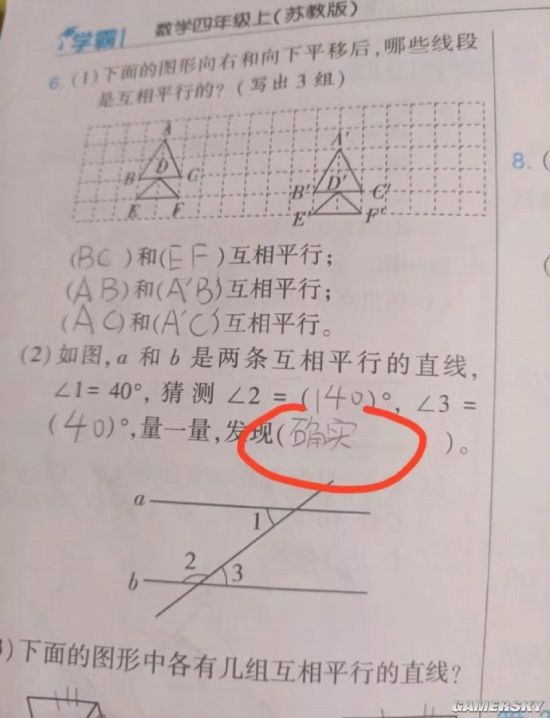 学霸 数学四年级上(苏教版)
6. (1)下面的图形向右和向下平移后,哪些线段
是互相平行的?(写出3组)
A A'
B D C B' D' C'
E F E' F'
8.
(BC)和(EF)互相平行;
(AB)和(A'B')互相平行;
(AC)和(A'C')互相平行。
(2)如图,a和b是两条互相平行的直线,
∠1=40°,猜测∠2=(140)°,∠3=
(40)°,量一量,发现(确实)。
a
1
2 3
b
)下面的图形中各有几组互相平行的直线?
GAMERSKY